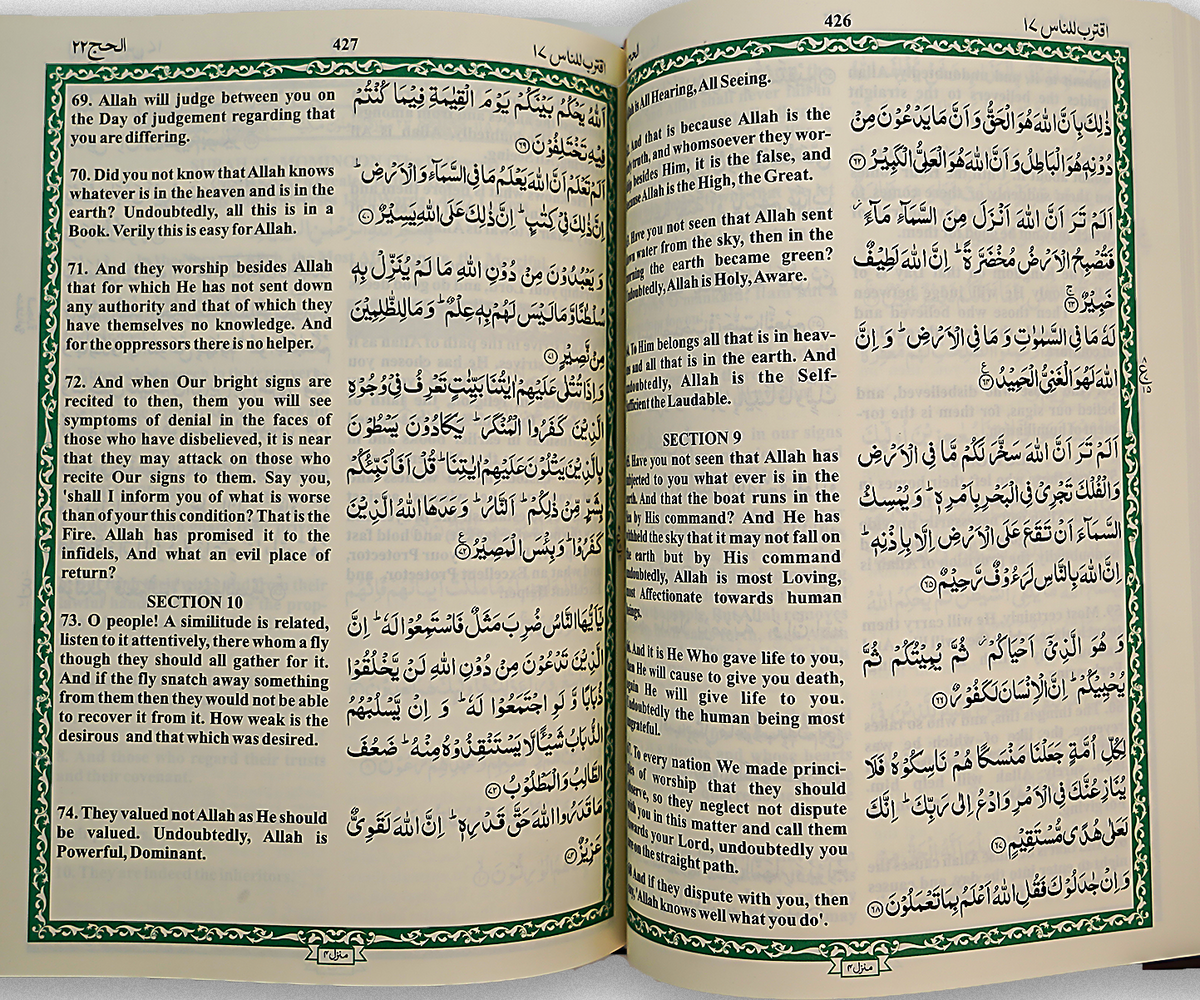 426
اقترب للناس ١٧
All Hearing, All Seeing.
And that is because Allah is the
truth, and whomsoever they wor-
besides Him, it is the false, and
Allah is the High, the Great.
Have you not seen that Allah sent
water from the sky, then in the
the earth became green?
Allah is Holy, Aware.
To Him belongs all that is in heav-
and all that is in the earth. And
Allah is the Self-
the Laudable.
SECTION 9
Have you not seen that Allah has
to you what ever is in the
And that the boat runs in the
by His command? And He has
the sky that it may not fall on
earth but by His command
Allah is most Loving,
Affectionate towards human
And it is He Who gave life to you,
He will cause to give you death,
He will give life to you.
the human being most
To every nation We made princi-
of worship that they should
so they neglect not dispute
you in this matter and call them
your Lord, undoubtedly you
on the straight path.
And if they dispute with you, then
'Allah knows well what you do'.
ذٰلِكَ بِاَنَّ اللّٰهَ هُوَ الْحَقُّ وَاَنَّ مَا يَدْعُوْنَ مِنْ
دُوْنِهٖ هُوَ الْبَاطِلُ وَاَنَّ اللّٰهَ هُوَ الْعَلِيُّ الْكَبِيْرُ ۝٦٢
اَلَمْ تَرَ اَنَّ اللّٰهَ اَنْزَلَ مِنَ السَّمَآءِ مَآءً ۫
فَتُصْبِحُ الْاَرْضُ مُخْضَرَّةً ؕ اِنَّ اللّٰهَ لَطِيْفٌ
خَبِيْرٌ ۝٦٣
لَهٗ مَا فِى السَّمٰوٰتِ وَمَا فِى الْاَرْضِ ؕ وَاِنَّ
اللّٰهَ لَهُوَ الْغَنِيُّ الْحَمِيْدُ ۝٦٤
اَلَمْ تَرَ اَنَّ اللّٰهَ سَخَّرَ لَكُمْ مَّا فِى الْاَرْضِ
وَالْفُلْكَ تَجْرِىْ فِى الْبَحْرِ بِاَمْرِهٖ ؕ وَيُمْسِكُ
السَّمَآءَ اَنْ تَقَعَ عَلَى الْاَرْضِ اِلَّا بِاِذْنِهٖ ؕ
اِنَّ اللّٰهَ بِالنَّاسِ لَرَءُوْفٌ رَّحِيْمٌ ۝٦٥
وَهُوَ الَّذِىْۤ اَحْيَاكُمْ ۫ ثُمَّ يُمِيْتُكُمْ ثُمَّ
يُحْيِيْكُمْ ؕ اِنَّ الْاِنْسَانَ لَكَفُوْرٌ ۝٦٦
لِكُلِّ اُمَّةٍ جَعَلْنَا مَنْسَكًا هُمْ نَاسِكُوْهُ فَلَا
يُنَازِعُنَّكَ فِى الْاَمْرِ وَادْعُ اِلٰى رَبِّكَ ؕ اِنَّكَ
لَعَلٰى هُدًى مُّسْتَقِيْمٍ ۝٦٧
وَاِنْ جٰدَلُوْكَ فَقُلِ اللّٰهُ اَعْلَمُ بِمَا تَعْمَلُوْنَ ۝٦٨
منزل ٤
الحج ٢٢
427
اقترب للناس ١٧
69. Allah will judge between you on
the Day of judgement regarding that
you are differing.
70. Did you not know that Allah knows
whatever is in the heaven and is in the
earth? Undoubtedly, all this is in a
Book. Verily this is easy for Allah.
71. And they worship besides Allah
that for which He has not sent down
any authority and that of which they
have themselves no knowledge. And
for the oppressors there is no helper.
72. And when Our bright signs are
recited to then, them you will see
symptoms of denial in the faces of
those who have disbelieved, it is near
that they may attack on those who
recite Our signs to them. Say you,
'shall I inform you of what is worse
than of your this condition? That is the
Fire. Allah has promised it to the
infidels, And what an evil place of
return?
SECTION 10
73. O people! A similitude is related,
listen to it attentively, there whom a fly
though they should all gather for it.
And if the fly snatch away something
from them then they would not be able
to recover it from it. How weak is the
desirous and that which was desired.
74. They valued not Allah as He should
be valued. Undoubtedly, Allah is
Powerful, Dominant.
اَللّٰهُ يَحْكُمُ بَيْنَكُمْ يَوْمَ الْقِيٰمَةِ فِيْمَا كُنْتُمْ
فِيْهِ تَخْتَلِفُوْنَ ۝٦٩
اَلَمْ تَعْلَمْ اَنَّ اللّٰهَ يَعْلَمُ مَا فِى السَّمَآءِ وَالْاَرْضِ ؕ
اِنَّ ذٰلِكَ فِىْ كِتٰبٍ ؕ اِنَّ ذٰلِكَ عَلَى اللّٰهِ يَسِيْرٌ ۝٧٠
وَيَعْبُدُوْنَ مِنْ دُوْنِ اللّٰهِ مَا لَمْ يُنَزِّلْ بِهٖ
سُلْطٰنًا وَّمَا لَيْسَ لَهُمْ بِهٖ عِلْمٌ ؕ وَمَا لِلظّٰلِمِيْنَ
مِنْ نَّصِيْرٍ ۝٧١
وَاِذَا تُتْلٰى عَلَيْهِمْ اٰيٰتُنَا بَيِّنٰتٍ تَعْرِفُ فِىْ وُجُوْهِ
الَّذِيْنَ كَفَرُوا الْمُنْكَرَ ؕ يَكَادُوْنَ يَسْطُوْنَ
بِالَّذِيْنَ يَتْلُوْنَ عَلَيْهِمْ اٰيٰتِنَا ؕ قُلْ اَفَاُنَبِّئُكُمْ
بِشَرٍّ مِّنْ ذٰلِكُمْ ؕ اَلنَّارُ ؕ وَعَدَهَا اللّٰهُ الَّذِيْنَ
كَفَرُوْا ؕ وَبِئْسَ الْمَصِيْرُ ۝٧٢
يٰۤاَيُّهَا النَّاسُ ضُرِبَ مَثَلٌ فَاسْتَمِعُوْا لَهٗ ؕ اِنَّ
الَّذِيْنَ تَدْعُوْنَ مِنْ دُوْنِ اللّٰهِ لَنْ يَّخْلُقُوْا
ذُبَابًا وَّلَوِ اجْتَمَعُوْا لَهٗ ؕ وَاِنْ يَّسْلُبْهُمُ
الذُّبَابُ شَيْـًٔا لَّا يَسْتَنْقِذُوْهُ مِنْهُ ؕ ضَعُفَ
الطَّالِبُ وَالْمَطْلُوْبُ ۝٧٣
مَا قَدَرُوا اللّٰهَ حَقَّ قَدْرِهٖ ؕ اِنَّ اللّٰهَ لَقَوِيٌّ
عَزِيْزٌ ۝٧٤
منزل ٤